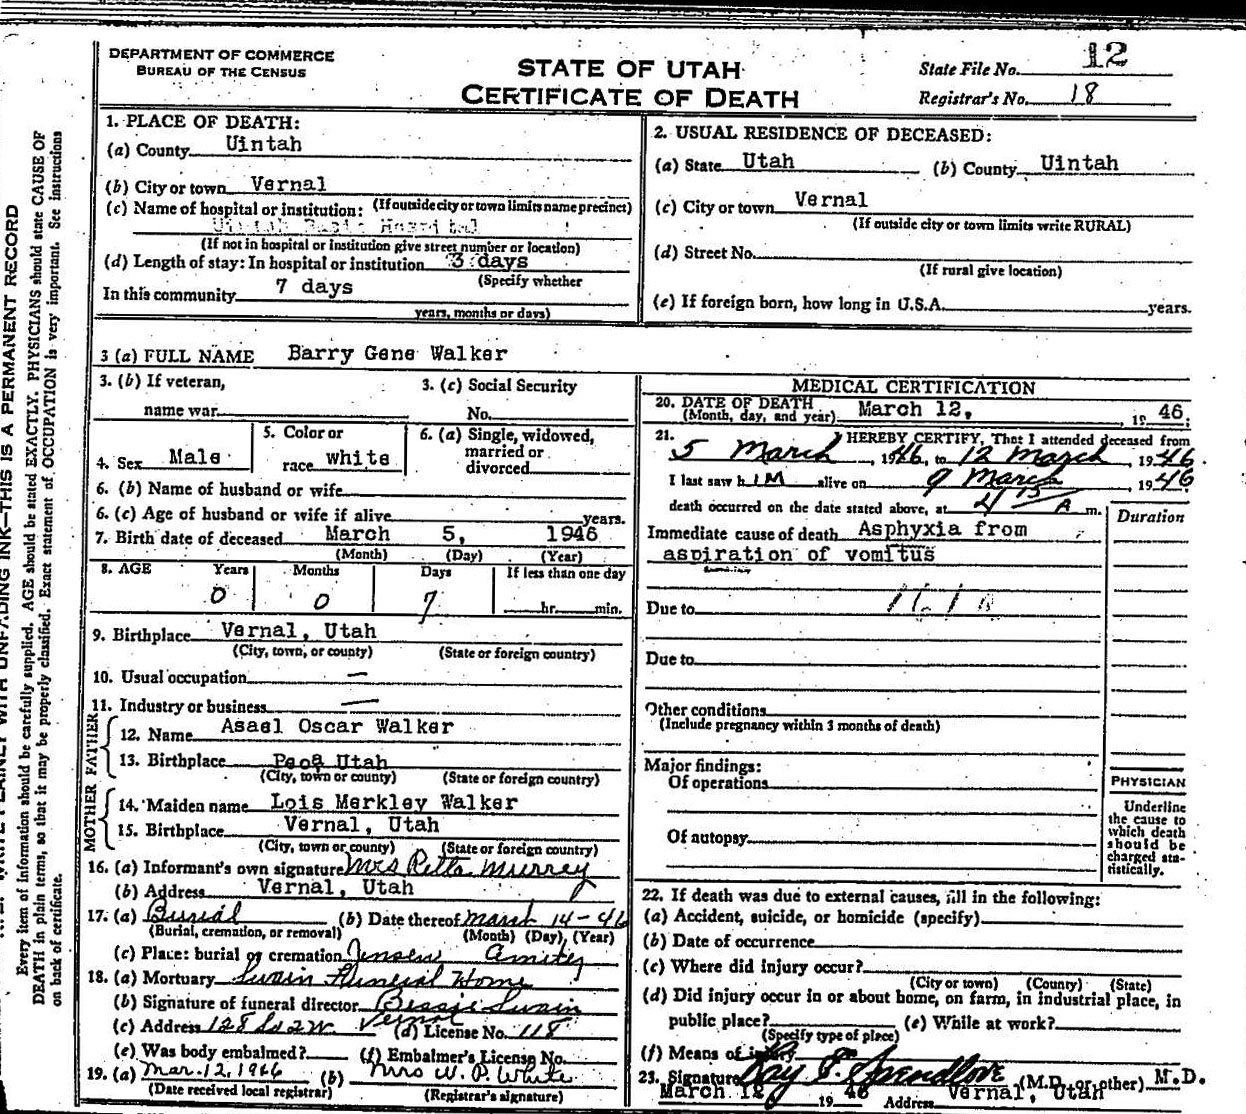 DEPARTMENT OF COMMERCE
BUREAU OF THE CENSUS
STATE OF UTAH
CERTIFICATE OF DEATH
State File No. 12
Registrar's No. 18
THIS IS A PERMANENT RECORD
Every item of information should be carefully supplied. AGE should be stated EXACTLY. PHYSICIANS should state CAUSE OF
DEATH in plain terms, so that it may be properly classified. Exact statement of OCCUPATION is very important. See instructions
on back of certificate.
1. PLACE OF DEATH:
(a) County Uintah
(b) City or town Vernal
(If outside city or town limits name precinct)
(c) Name of hospital or institution:
Uintah Basin Hospital
(If not in hospital or institution give street number or location)
(d) Length of stay: In hospital or institution 3 days
(Specify whether
In this community 7 days
years, months or days)
2. USUAL RESIDENCE OF DECEASED:
(a) State Utah (b) County Uintah
(c) City or town Vernal
(If outside city or town limits write RURAL)
(d) Street No.
(If rural give location)
(e) If foreign born, how long in U.S.A. years.
3 (a) FULL NAME Barry Gene Walker
3. (b) If veteran,
name war
3. (c) Social Security
No.
4. Sex Male
5. Color or
race white
6. (a) Single, widowed,
married or
divorced
6. (b) Name of husband or wife
6. (c) Age of husband or wife if alive years.
7. Birth date of deceased March 5, 1946
(Month) (Day) (Year)
8. AGE Years Months Days If less than one day
0 0 7 hr. min.
9. Birthplace Vernal, Utah
(City, town, or county) (State or foreign country)
10. Usual occupation —
11. Industry or business —
FATHER
12. Name Asael Oscar Walker
13. Birthplace Peoa Utah
(City, town or county) (State or foreign country)
MOTHER
14. Maiden name Lois Merkley Walker
15. Birthplace Vernal, Utah
(City, town or county) (State or foreign country)
16. (a) Informant's own signature Mrs Retta Murrey
(b) Address Vernal, Utah
17. (a) Burial (b) Date thereof March 14-46
(Burial, cremation, or removal) (Month) (Day) (Year)
(c) Place: burial or cremation Jensen
18. (a) Mortuary Swain Funeral Home
(b) Signature of funeral director Bessie Swain
(c) Address 128 So 2 W. Vernal (d) License No. 118
(e) Was body embalmed? (f) Embalmer's License No.
19. (a) Mar. 12, 1946 (b) Mrs W. P. White
(Date received local registrar) (Registrar's signature)
MEDICAL CERTIFICATION
20. DATE OF DEATH
(Month, day, and year) March 12, 19 46.
21. I HEREBY CERTIFY, That I attended deceased from
5 March, 1946, to 12 March, 1946.
I last saw him alive on 9 March, 1946
death occurred on the date stated above, at 4 15 A m.
Duration
Immediate cause of death Asphyxia from
aspiration of vomitus
Due to
Due to
Other conditions
(Include pregnancy within 3 months of death)
Major findings:
Of operations
Of autopsy
PHYSICIAN
Underline
the cause to
which death
should be
charged sta-
tistically.
22. If death was due to external causes, fill in the following:
(a) Accident, suicide, or homicide (specify)
(b) Date of occurrence
(c) Where did injury occur?
(City or town) (County) (State)
(d) Did injury occur in or about home, on farm, in industrial place, in
public place? (e) While at work?
(Specify type of place)
(f) Means of injury
23. Signature Ray E. Spendlove (M.D. or other) M.D.
March 12 19 46 Address Vernal, Utah